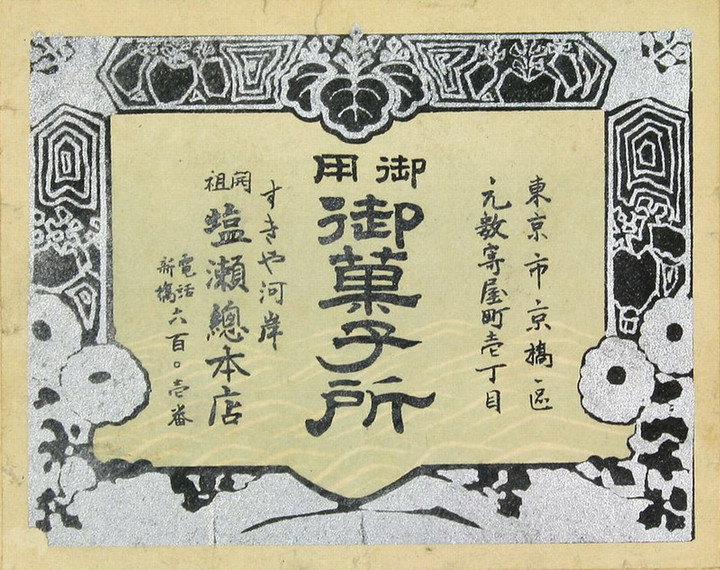 東京市京橋區
元数寄屋町壱丁目
御用
御菓子所
すきや河岸
開祖
塩瀬總本店
電話
新橋
六百〇壱番